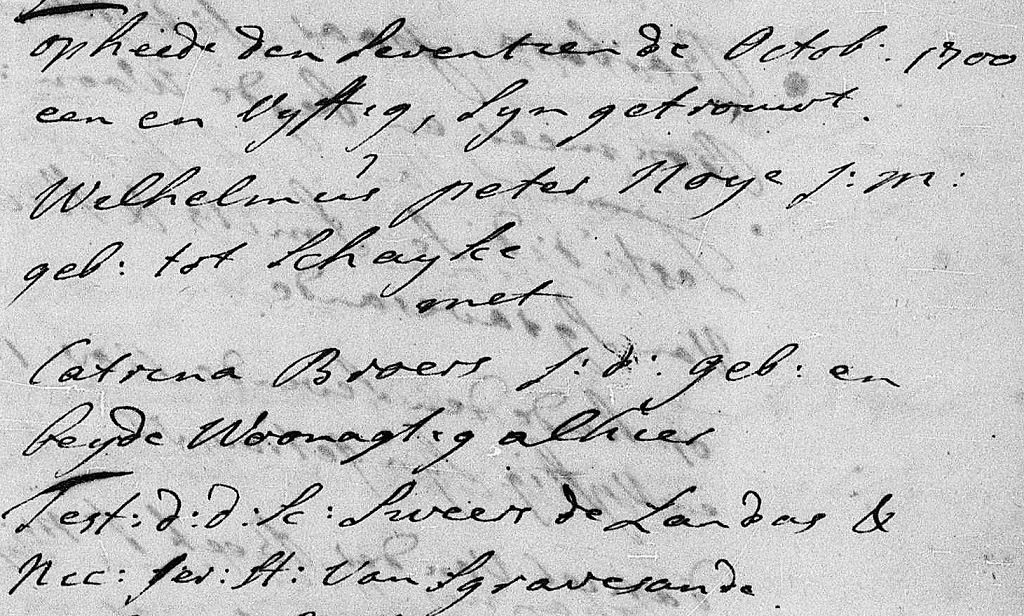 opheede den Seventien de Octob: 1700
een en Vyftig, Syn getrouwt.
Wilhelmus peter Noye j: m:
geb: tot Schayke
met
Catrina Broers j: d: geb: en
beyde Woonagtig alhier
Test: d: d: Sc: Sweers de Landas &
Nec: H: Van Sgravesande